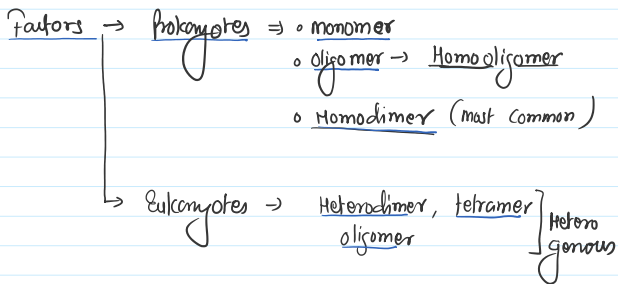 Factors → Prokaryotes ⇒ ∘ monomer
∘ oligomer → Homooligomer
∘ Homodimer (most common)
↳ Eukaryotes → Heterodimer, tetramer] Hetero
oligomer genous